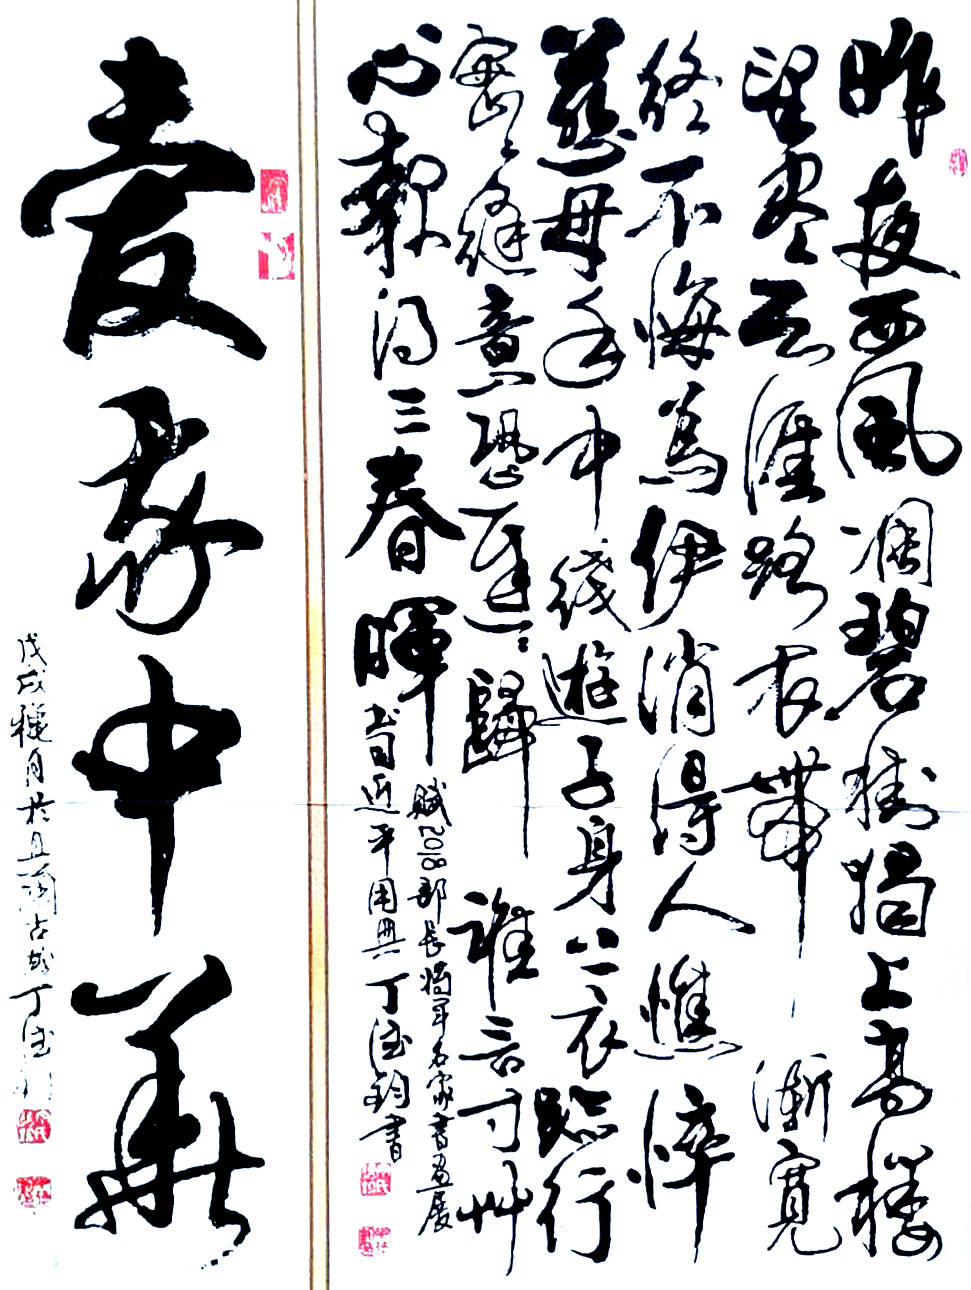 昨夜西風凋碧樹獨上高樓
望盡天涯路衣帶漸寬
終不悔為伊消得人憔悴
慈母手中綫遊子身上衣臨行
密密縫意恐遲遲歸誰言寸艸
心報得三春暉
賦2018部長將軍名家書畫展
書習近平用典丁德鈞書
愛我中華
戊戌穐月於且蘭古城丁德鈞